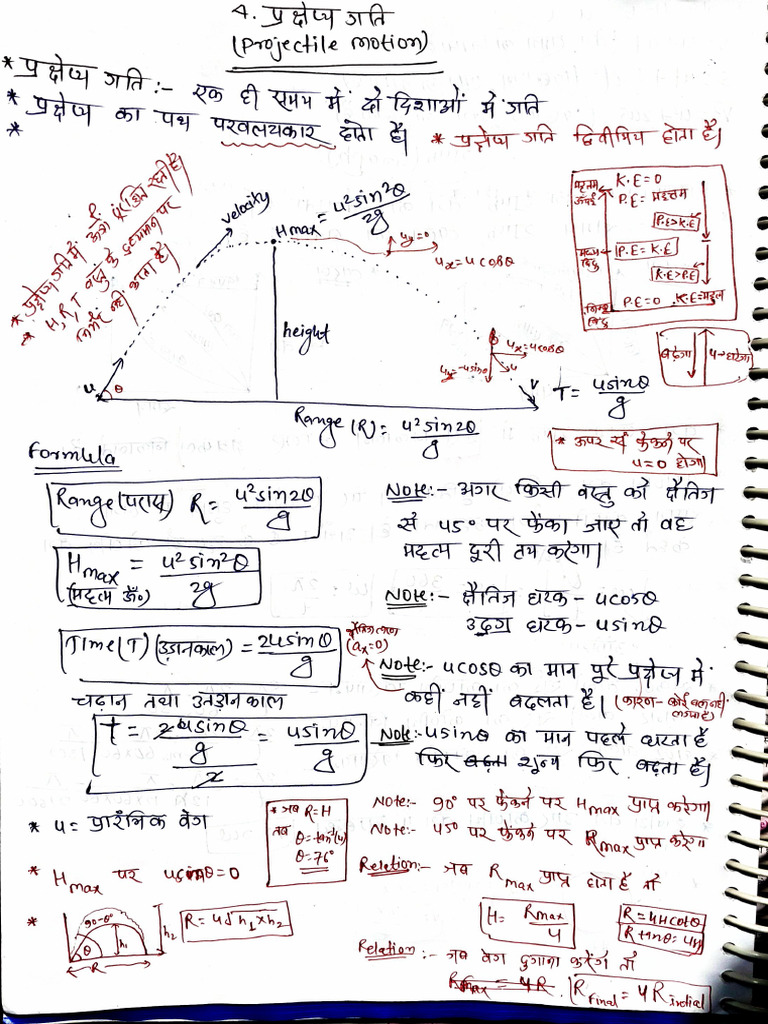 4. प्रक्षेप्य गति
(Projectile motion)
* प्रक्षेप्य गति :- एक ही समय में दो दिशाओं में गति
* प्रक्षेप्य का पथ परवलयकार होता है।
*
* प्रक्षेप्य गति द्विविमिय होता है।
* प्रक्षेप्य गति में P. ऊर्जा सुरक्षित रहती है।
* H, R, T वस्तु के द्रव्यमान पर
निर्भर नहीं करता है।
velocity
Hmax = u²sin²θ/2g
uy=0
ux = ucosθ
height
u
θ
ux = ucosθ
uy = -usinθ
u
v
Range (R) = u²sin2θ/g
महत्तम ऊंचाई
K.E=0
P.E= महत्तम
P.E>K.E
मध्य बिंदु
P.E = K.E
K.E>P.E
निम्न बिंदु
P.E=0 K.E=महत्तम
बढ़ेगा
u→घटेगा
T = usinθ/g
* ऊपर फेंकने पर
u=0 होगा।
Formula
Range(परास) R = u²sin2θ/g
Hmax = u²sin²θ/2g
(महत्तम ऊँ०)
Time(T)(उड़ानकाल) = 2usinθ/g
चढ़ान तथा उतड़ान काल
t = 2usinθ/g/2 = usinθ/g
Note:- अगर किसी वस्तु को क्षैतिज
से 45° पर फेंका जाए तो वह
महत्म दूरी तय करेगा।
Note:- क्षैतिज घटक - ucosθ
उदग्र घटक - usinθ
क्षैतिज त्वरण
(ax=0)
Note:- ucosθ का मान पूरे प्रक्षेप्य में
कहीं नहीं बदलता है। (कारण - कोई बल नहीं
लगता है)
Note:- usinθ का मान पहले घटता है
फिर शून्य फिर बढ़ता है।
* u = प्रारंभिक वेग
* Hmax पर usinθ=0
* जब R=H
तब
θ = tan⁻¹(4)
θ = 76°
*
90-θ°
θ
h1
h2
R
R = 4√h1×h2
Note:- 90° पर फेंकने पर Hmax प्राप्त करेगा।
Note:- 45° पर फेंकने पर Rmax प्राप्त करेगा।
Relation:- जब Rmax प्राप्त होता है तो
H = Rmax/4
R = 4Hcotθ
R tanθ = 4H
Relation:- जब वेग दुगाना करेंगे तो
Rmax = 4R
Rfinal = 4 Rindial